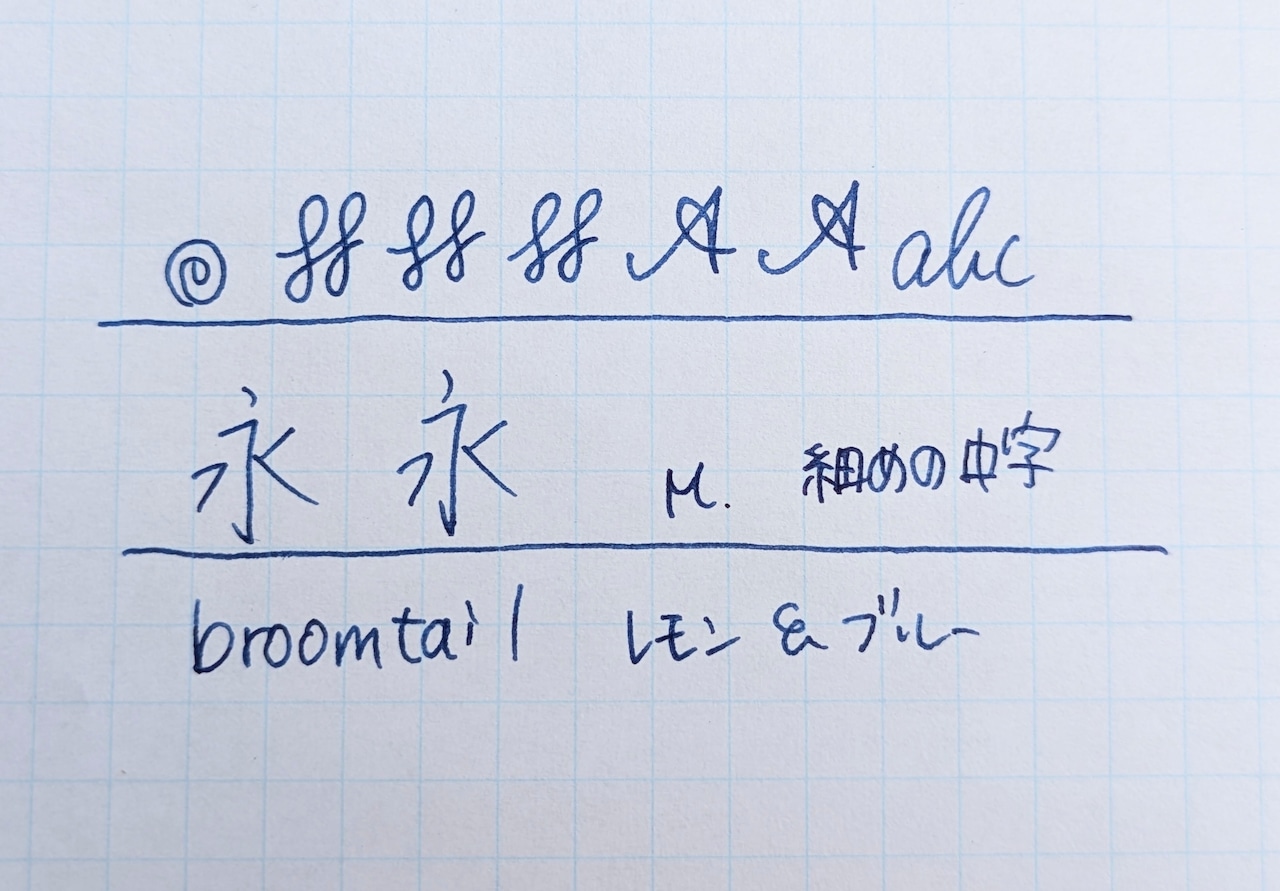 ff ff ff A A abc
永 永 M. 細めの中字
broomtail レモン & ブルー